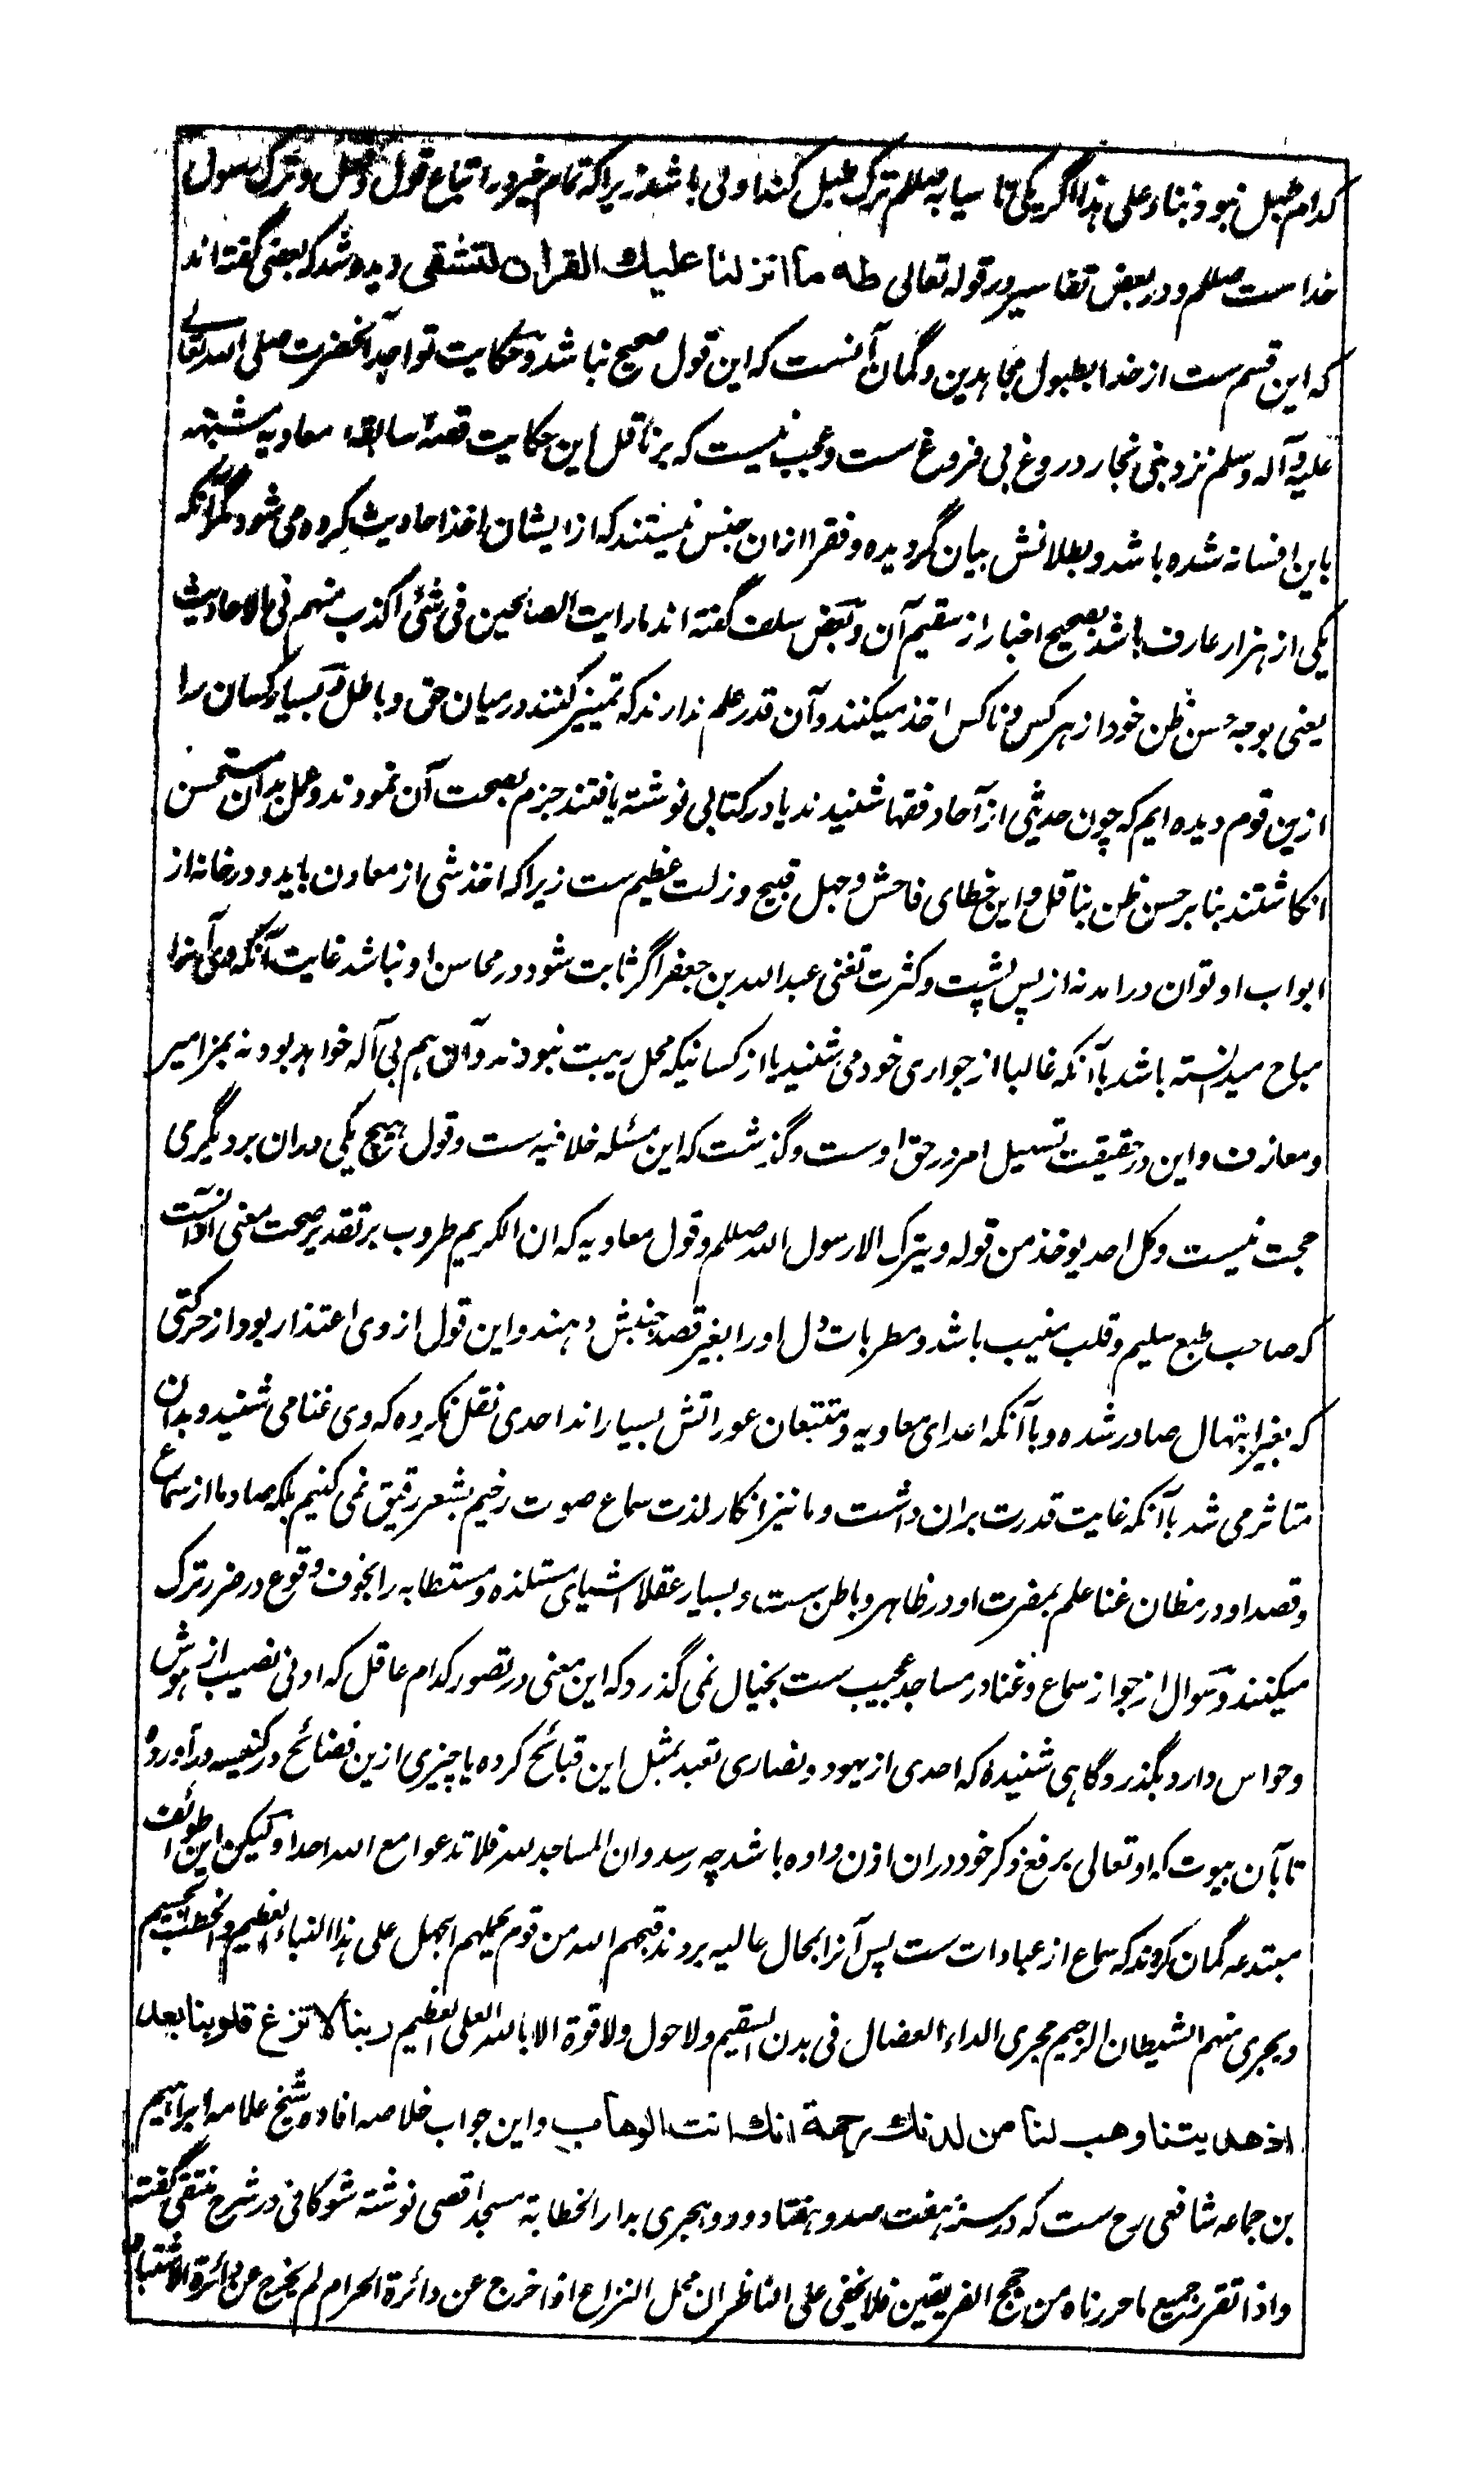 کدام طبل نبود بناء علی هذا اگر یکی تاسیا به صللم ترک طبل کند اولی باشد زیراکه تمام خیر در اتباع قول و فعل و ترک رسول
خداست صللم و در بعض تفاسیر در قوله تعالی طه ما انزلنا علیك القران لتشقی دیده شد که بعضی گفته اند
که این قسم ست از خدا بطبول مجاهدین و گمان آنست که این قول صحیح نباشد و حکایت تواجد آنحضرت صلی الله تعالے
علیه و آله وسلم نزد بنی نجار دروغ بی فروغ ست و عجب نیست که بر ناقل این حکایت قصهٔ سابقهٔ معاویه مشتبه
باین افسانه شده باشد و بطلانش بیان گردیده و فقرا ازان جنس نیستند که از ایشان اخذ احادیث کرده می شود مگر آنکه
یکی از هزار عارف باشد بصحیح اخبار از سقیم آن و بعض سلف گفته اند ما رایت الصالحین فی شئ اکذب منهم فی الاحادیث
یعنی بوجه حسن ظن خود از هر کس و ناکس اخذ میکنند و آن قدر علم ندارند که تمییز کنند درمیان حق و باطل و بسیار کسان را
ازین قوم دیده ایم که چون حدیثی از آحاد فقها شنیدند یا در کتابی نوشته یافتند جزم بصحت آن نمودند و عمل بدان مستحسن
انکاشتند بنابر حسن ظن بناقل و این خطای فاحش و جهل قبیح و زلت عظیم ست زیراکه اخذ شی از معادن باید و در خانه از
ابواب او توان درامد نه از پس پشت و کثرت تغنی عبدالله بن جعفر اگر ثابت شود در محاسن او نباشد غایت آنکه وی آنرا
مباح میدانسته باشد با آنکه غالبا از جواری خود می شنید یا از کسانیکه محل ریبت نبودند و آن هم بی آله خواهد بود نه بمزامیر
و معازف و این در حقیقت تسهیل امر در حق اوست و گذشت که این مسئله خلافیه ست و قول هیچ یکی دران بر دیگری
حجت نیست و کل احد یوخذ من قوله و یترک الا رسول الله صللم و قول معاویه که ان الکریم طروب بر تقدیر صحت معنی او آنست
که صاحب طبع سلیم و قلب منیب باشد و مطربات دل او را بغیر قصد جنبش دهند و این قول از وی اعتذار بود از حرکتی
که بغیر ابتهال صادر شده و با آنکه اعدای معاویه و متتبعان عوراتش بسیار اند احدی نقل نکرده که وی غنا می شنید و بدان
متاثر می شد با آنکه غایت قدرت بران داشت و ما نیز انکار لذت سماع صوت رخیم بشعر رقیق نمی کنیم بلکه صاد ما از سماع
و قصد او در مظان غنا علم بمضرت او در ظاهر و باطن ست و بسیار عقلا اشیای مستلذه و مستطابه را بخوف وقوع در ضرر ترک
میکنند و سوال از جواز سماع و غنا در مساجد عجیب ست بخیال نمی گذرد که این معنی در تصور کدام عاقل که ادنی نصیب از هوش
و حواس دارد بگذرد گاهی شنیده که احدی از یهود و نصاری تعبد بمثل این قبائح کرده یا چیزی ازین فضائح در کنیسه درآورده
تا بآن بیوت که او تعالی برفع ذکر خود دران اذن داده باشد چه رسد و ان المساجد لله فلا تدعوا مع الله احدا و لیکن این طوائف
مبتدعه گمان کردند که سماع از عبادات ست پس آنرا بمحال عالیه بردند قبحهم الله من قوم یحملهم الجهل علی هذا النباء العظیم و الخطب الجسیم
و یجری منهم الشیطان الرجیم مجری الداء العضال فی بدن السقیم و لا حول و لا قوة الا بالله العلی العظیم ربنا لا تزغ قلوبنا بعد
اذ هدیتنا وهب لنا من لدنك رحمة انك انت الوهاب و این جواب خلاصه افاده شیخ علامه ابراهیم
بن جماعه شافعی رح ست که در سنه هفت صد و هفتاد و دو هجری بدار الخطابة مسجد اقصی نوشته شوکانی در شرح منتقی گفته
و اذا تقرر جمیع ما حررناه من حجج الفریقین فلا یخفی علی الناظر ان محل النزاع اذا خرج عن دائرة الحرام لم یخرج عن دائرة الاشتباه